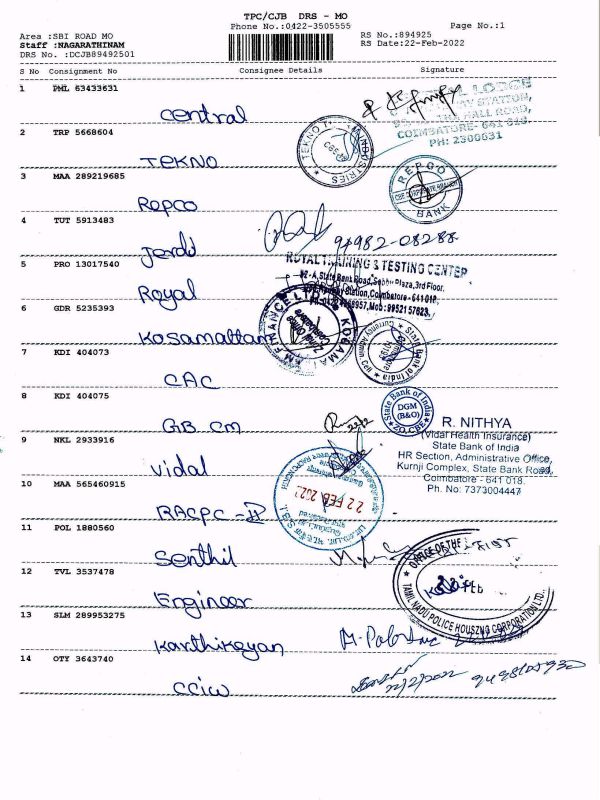 TPC/CJB DRS - MO
Phone No.:0422-3505555 Page No.:1
Area :SBI ROAD MO RS No.:894925
Staff :NAGARATHINAM RS Date:22-Feb-2022
DRS No. :DCJB89492501
S No Consignment No Consignee Details Signature
1 PML 63433631
Central
LODGE
STATION,
HALL ROAD,
COIMBATORE- 641 018.
PH: 2300631
2 TRP 5668604
TEKNO
TEKNO INDUSTRIES
3 MAA 289219685
Repco
REPCO BANK
CBE CORPORATE BRANCH
4 TUT 5913483
94982-08288
5 PRO 13017540
Royal
ROYAL TRAINING & TESTING CENTER
State Bank Road, Plaza, 3rd Floor,
Station, Coimbatore - 641 018,
Mob : 9952157823.
6 GDR 5235393
Kosamattam
7 KDI 404073
CAC
State Bank of India
8 KDI 404075
GB CM
State Bank of India
DGM
(B&O)
ZO, CBE
9 NKL 2933916
Vidal
R. NITHYA
(Vidal Health Insurance)
State Bank of India
HR Section, Administrative Office,
Kurnji Complex, State Bank Road,
Coimbatore - 641 018.
Ph. No: 7373004447
10 MAA 565460915
RACPC - II
22 FEB 2022
11 POL 1880560
Senthil
12 TVL 3537478
Engineer
OFFICE OF THE
TAMIL NADU POLICE HOUSING CORPORATION LTD.,
13 SLM 289953275
Karthikeyan
14 OTY 3643740
CCIW